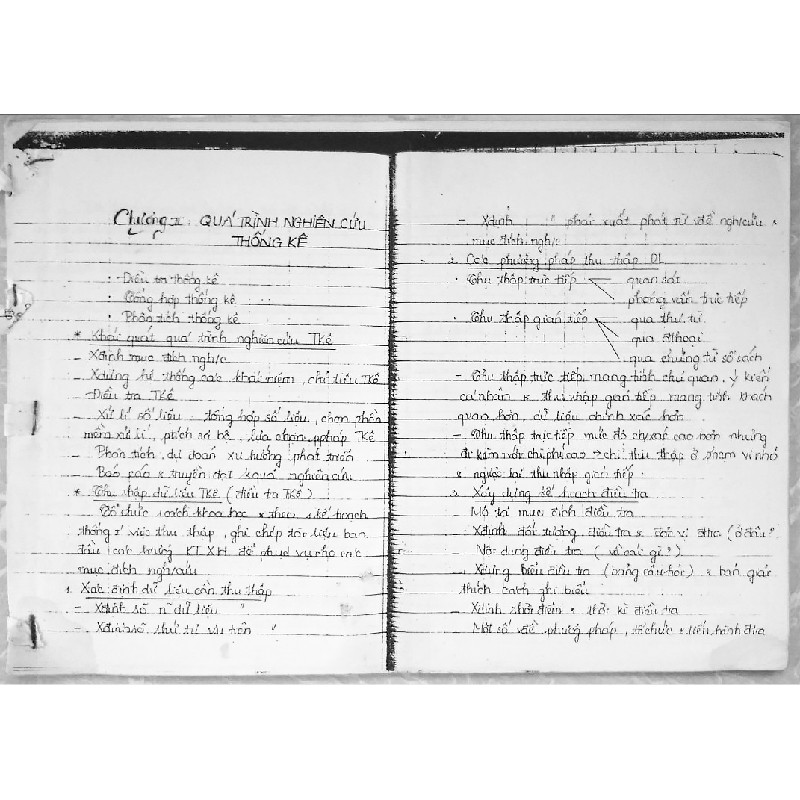 Chương II: QUÁ TRÌNH NGHIÊN CỨU
THỐNG KÊ
: Điều tra thống kê
: Tổng hợp thống kê
: Phân tích thống kê
* Khái quát quá trình nghiên cứu TKê
_ Xđịnh mục đích ngh/c
_ Xdựng hệ thống các khái niệm, chỉ tiêu TK
_ Điều tra TKê
_ Xử lí số liệu: tổng hợp số liệu, chọn phần
mềm xử lí, ptích sơ bộ, lựa chọn ppháp TKê
_ Phân tích, dự đoán xu hướng phát triển
_ Báo cáo & truyền đạt kquả nghiên cứu
* Thu thập dữ liệu TKê (điều tra TKê)
Tổ chức 1 cách khoa học & theo 1 kế hoạch
thống I việc thu thập, ghi chép tài liệu ban
đầu các trường KT XH để phục vụ cho
mục đích ngh cứu
1. Xác định dữ liệu cần thu thập
_ Xđịnh số dữ liệu "
_ Xđịnh số thứ tự ưu tiên "
_ Xđịnh " phải xuất phát từ đề nghcứu &
mục đích ngh/c
2. Các phương pháp thu thập DL
. Thu thập trực tiếp quan sát
phỏng vấn trực tiếp
. Thu thập gián tiếp qua thư từ
qua đthoại
qua chứng từ sổ sách
_ Thu thập trực tiếp mang tính chủ quan, ý kiến
cá nhân & thu thập gián tiếp mang tính khách
quan hơn, dữ liệu chính xác hơn
_ Thu thập trực tiếp mức độ chxác cao hơn nhưng
đi kèm với chi phí cao → chỉ thu thập ở phạm vi nhỏ
& ngược lại thu nhập gián tiếp
3. Xây dựng kế hoạch điều tra
_ Mô tả mục đích điều tra
_ Xđịnh đối tượng điều tra & đơn vị đtra (ở đâu?
_ Nội dung điều tra (về các gì?)
_ Xdựng biểu điều tra (bảng câu hỏi) & bản giải
thích cách ghi biểu
_ Xđịnh thời điểm & thời kì điều tra
_ Một số vđề phương pháp, tổ chức & tiến hành đtra